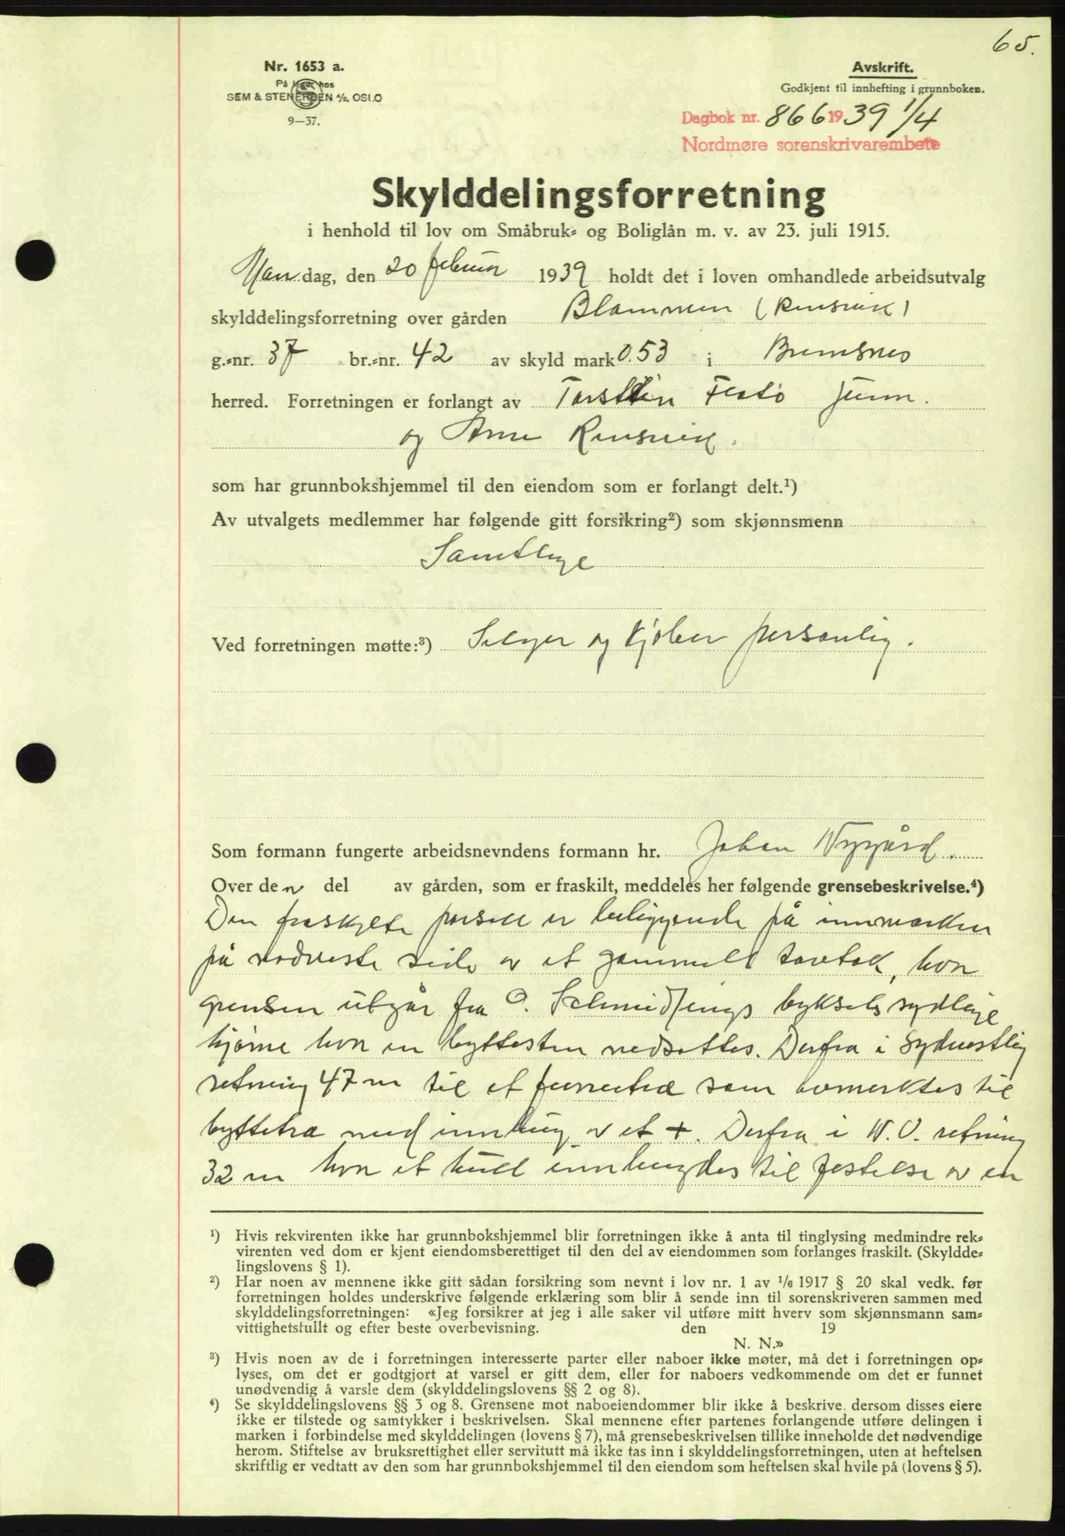 65.
Nr. 1653 a.
På lager hos
SEM & STENERSEN A/S, OSLO
9—37.
Avskrift.
Godkjent til innhefting i grunnboken.
Dagbok nr. 866 1939 1/4
Nordmøre sorenskrivarembete
Skylddelingsforretning
i henhold til lov om Småbruk- og Boliglån m. v. av 23. juli 1915.
Man dag, den 20 februar 1939 holdt det i loven omhandlede arbeidsutvalg
skylddelingsforretning over gården Blommen (Rensvik)
g.-nr. 37 br.-nr. 42 av skyld mark 0.53 i Bremsnes
herred. Forretningen er forlangt av Torstein Flatø Junn.
og Arne Rensvik.
som har grunnbokshjemmel til den eiendom som er forlangt delt.¹)
Av utvalgets medlemmer har følgende gitt forsikring²) som skjønnsmenn
Samtlige
Ved forretningen møtte:³) Selger og kjøber personlig.
Som formann fungerte arbeidsnevndens formann hr. Johan Nygård.
Over den del av gården, som er fraskilt, meddeles her følgende grensebeskrivelse.⁴)
Den fraskylte parsell er beliggende på innmarken
på nordveste side av et gammelt torvtak, hvor
grensen utgår fra O. Schmidts byksels sydlige
hjørne hvor en byttesten nedsettes. Derfra i sydvestlig
retning 47 m til et furretre som avmerktes til
byttetre med innhug av et +. Derfra i N.V. retning
32 m hvor et hull innhugdes til festelse av en
¹) Hvis rekvirenten ikke har grunnbokshjemmel blir forretningen ikke å anta til tinglysing medmindre rek-
virenten ved dom er kjent eiendomsberettiget til den del av eiendommen som forlanges fraskilt. (Skyldde-
lingslovens § 1).
²) Har noen av mennene ikke gitt sådan forsikring som nevnt i lov nr. 1 av 1/6 1917 § 20 skal vedk. før
forretningen holdes underskrive følgende erklæring som blir å sende inn til sorenskriveren sammen med
skylddelingsforretningen: «Jeg forsikrer at jeg i alle saker vil utføre mitt hverv som skjønnsmann sam-
vittighetsfullt og efter beste overbevisning. den 19
N. N.»
³) Hvis noen av de i forretningen interesserte parter eller naboer ikke møter, må det i forretningen op-
lyses, om det er godtgjort at varsel er gitt dem, eller for naboers vedkommende om det er funnet
unødvendig å varsle dem (skylddelingslovens §§ 2 og 8).
⁴) Se skylddelingslovens §§ 3 og 8. Grensene mot naboeiendommer blir ikke å beskrive, dersom disses eiere
ikke er tilstede og samtykker i beskrivelsen. Skal mennene efter partenes forlangende utføre delingen i
marken i forbindelse med skylddelingen (lovens § 7), må grensebeskrivelsen tillike inneholde det nødvendige
herom. Stiftelse av bruksrettighet eller servitutt må ikke tas inn i skylddelingsforretningen, uten at heftelsen
skriftlig er vedtatt av den som har grunnbokshjemmel til den eiendom som heftelsen skal hvile på (lovens § 5).